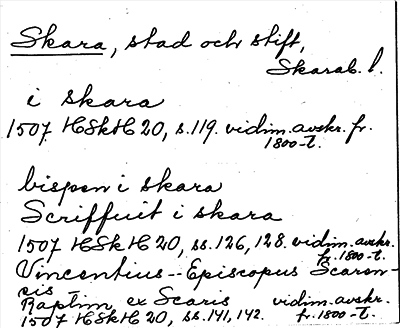 Skara, stad och stift,
Skarab. l.
i skara
1507 HSkH 20, s. 119. vidim. avskr. fr.
1800-t.
bispen i skara
Scriffuit i skara
1507 HSkH 20, ss. 126, 128. vidim. avskr.
fr. 1800-t.
Vincentius -- Episcopus Scaren-
cis
ex Scaris vidim. avskr.
1507 HSkH 20, ss. 141, 142. fr. 1800-t.